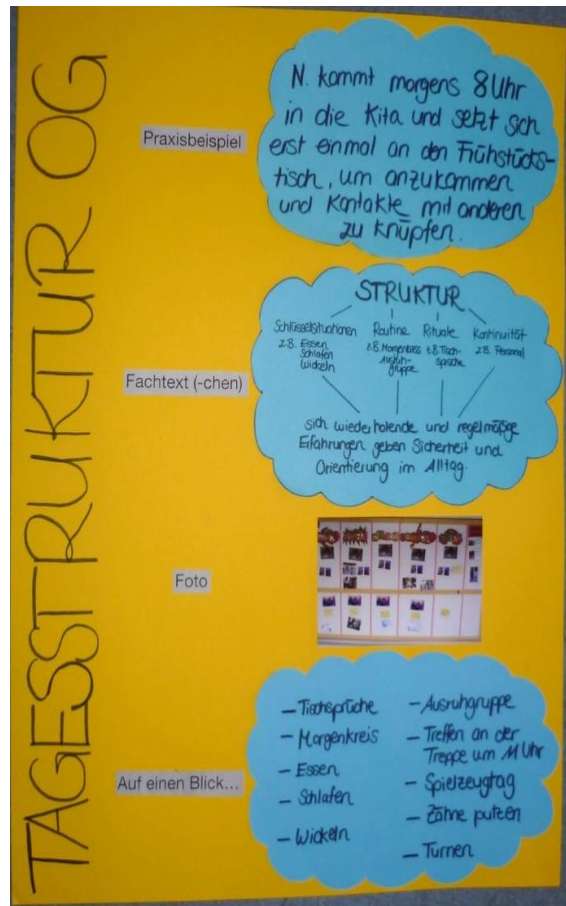 TAGESSTRUKTUR OG
Praxisbeispiel
N. kommt morgens 8 Uhr
in die Kita und setzt sich
erst einmal an den Frühstücks-
tisch, um anzukommen
und Kontakte mit anderen
zu knüpfen.
Fachtext (-chen)
STRUKTUR
Schlüsselsituationen Routine Rituale Kontinuität
z.B. Essen z.B. Morgenkreis z.B. Tisch- z.B. Personal
Schlafen Ausruh- sprüche
Wickeln gruppe
sich wiederholende und regelmäßige
Erfahrungen geben Sicherheit und
Orientierung im Alltag.
Foto
Auf einen Blick...
– Tischsprüche
– Morgenkreis
– Essen
– Schlafen
– Wickeln
– Ausruhgruppe
– Treffen an der
Treppe um 11 Uhr
– Spielzeugtag
– Zähne putzen
– Turnen